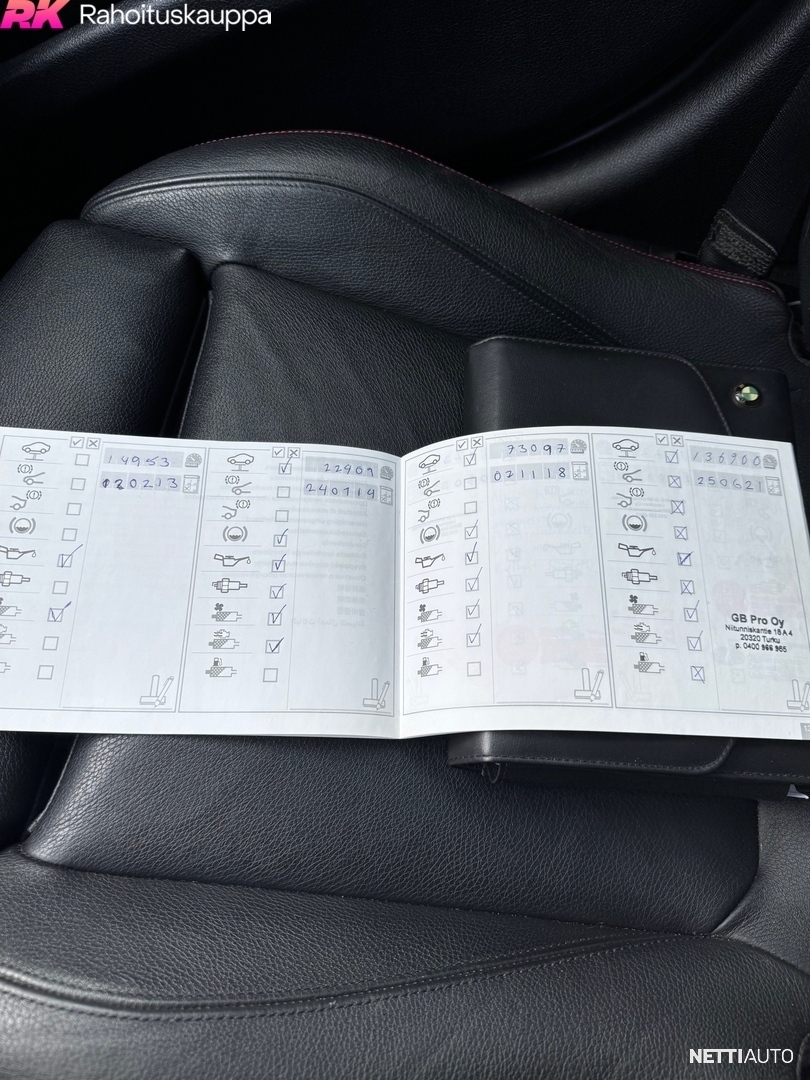 RK Rahoituskauppa
14953
020213
22901
240114
73097
021118
136900
250621
GB Pro Oy
Niitunniskantie 18 A 4
20320 Turku
p. 0400 866 965
NETTIAUTO